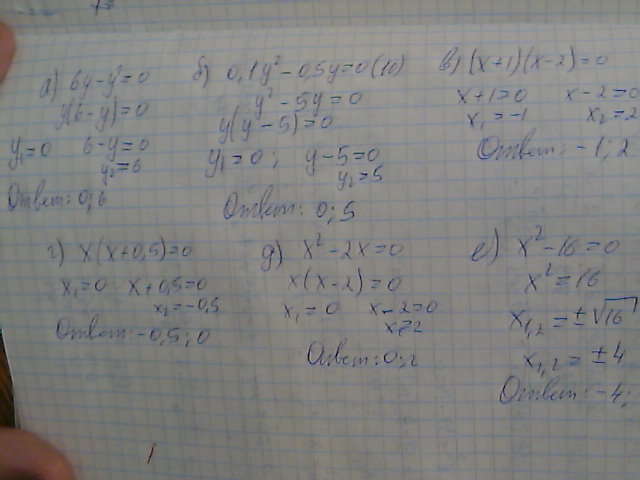 а) 6y-y²=0
y(6-y)=0
y₁=0 6-y=0
y₂=6
Ответ: 0; 6
б) 0,1y²-0,5y=0 (10)
y²-5y=0
y(y-5)=0
y₁=0; y-5=0
y₂=5
Ответ: 0; 5
в) (x+1)(x-2)=0
x+1=0 x-2=0
x₁=-1 x₂=2
Ответ: -1; 2
г) x(x+0,5)=0
x₁=0 x+0,5=0
x₂=-0,5
Ответ: -0,5; 0
д) x²-2x=0
x(x-2)=0
x₁=0 x-2=0
x₂=2
Ответ: 0; 2
е) x²-16=0
x²=16
x₁,₂=±√16
x₁,₂=±4
Ответ: -4;